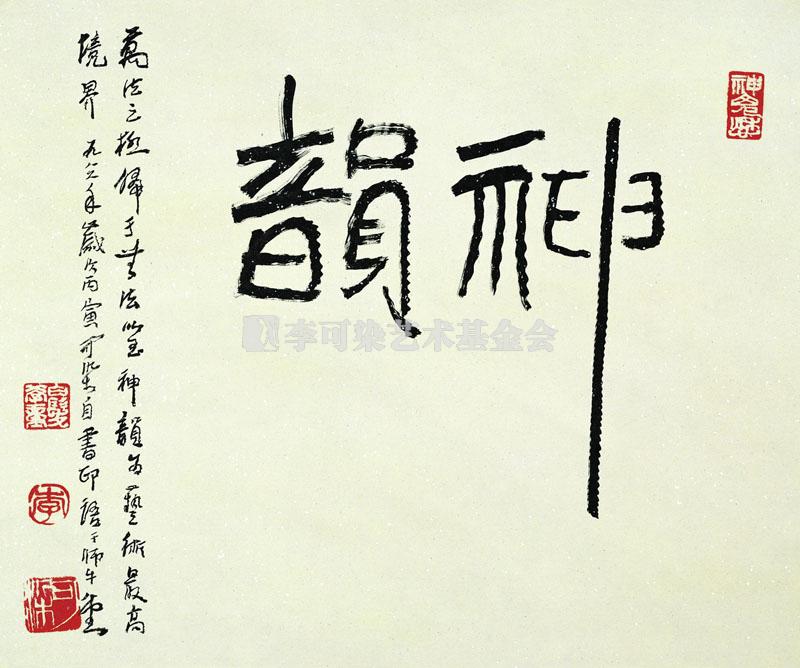 神韻
萬法之極歸于無法以至神韻为藝術最高
境界 九八六年歲次丙寅可染自書印語于師牛堂
李可染艺术基金会